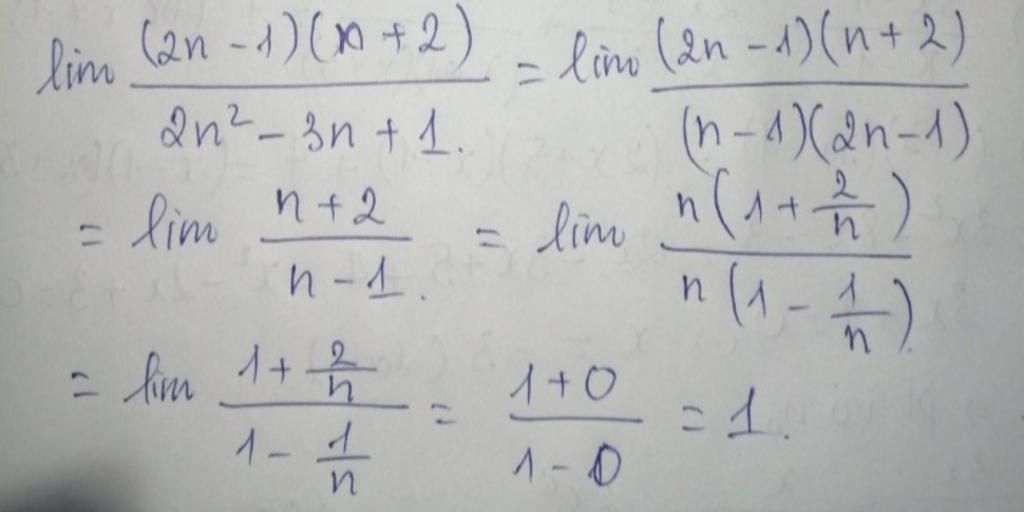 lim (2n - 1)(n + 2) / (2n² - 3n + 1) = lim (2n - 1)(n + 2) / ((n - 1)(2n - 1))
= lim (n + 2) / (n - 1) = lim n(1 + 2/n) / (n(1 - 1/n))
= lim (1 + 2/n) / (1 - 1/n) = (1 + 0) / (1 - 0) = 1.